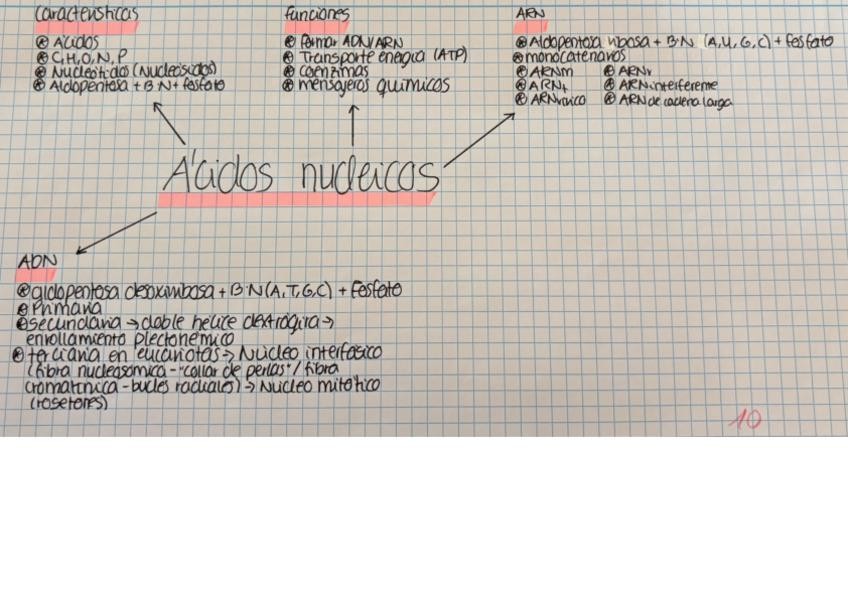 Características
Ácidos
C, H, O, N, P
Nucleótidos (Nucleósidos)
Aldopentosa + B.N + fosfato
funciones
Formar ADN/ARN
Transporte energía (ATP)
coenzimas
mensajeros químicos
ARN
Aldopentosa ribosa + B.N (A, U, G, C) + fosfato
monocatenarios
ARNm
ARNr
ARNt
ARN interferente
ARN de cadena larga
Ácidos nucleicos
ADN
aldopentosa desoxirribosa + B.N (A, T, G, C) + Fosfato
Primaria
secundaria → doble hélice dextrógira →
enrollamiento plectonémico
terciaria en eucariotas → Núcleo interfásico
(fibra nucleosómica - "collar de perlas" / fibra
cromatínica - bucles radiales) → Núcleo mitótico
(rosetones)
10